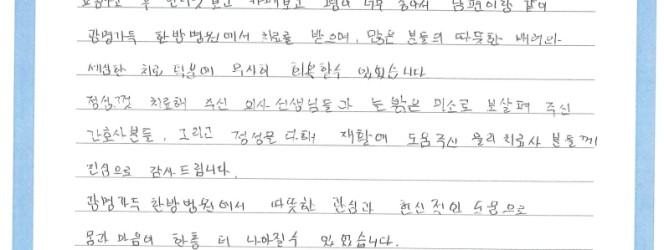 받고 한 번 가보고 평이 너무 좋아서 남편이랑 같이
광명가득 한방병원에서 치료를 받으며, 많은 분들의 따뜻한 배려와
세심한 치료 덕분에 무사히 회복할수 있었습니다
정성껏 치료해 주신 의사선생님들과 늘 밝은 미소로 보살펴 주신
간호사분들, 그리고 정성을 다해 재활에 도움주신 물리치료사 분들께
진심으로 감사드립니다.
광명가득한방병원에서 따뜻한 관심과 헌신적인 도움으로
몸과 마음이 한층 더 나아질수 있었습니다.